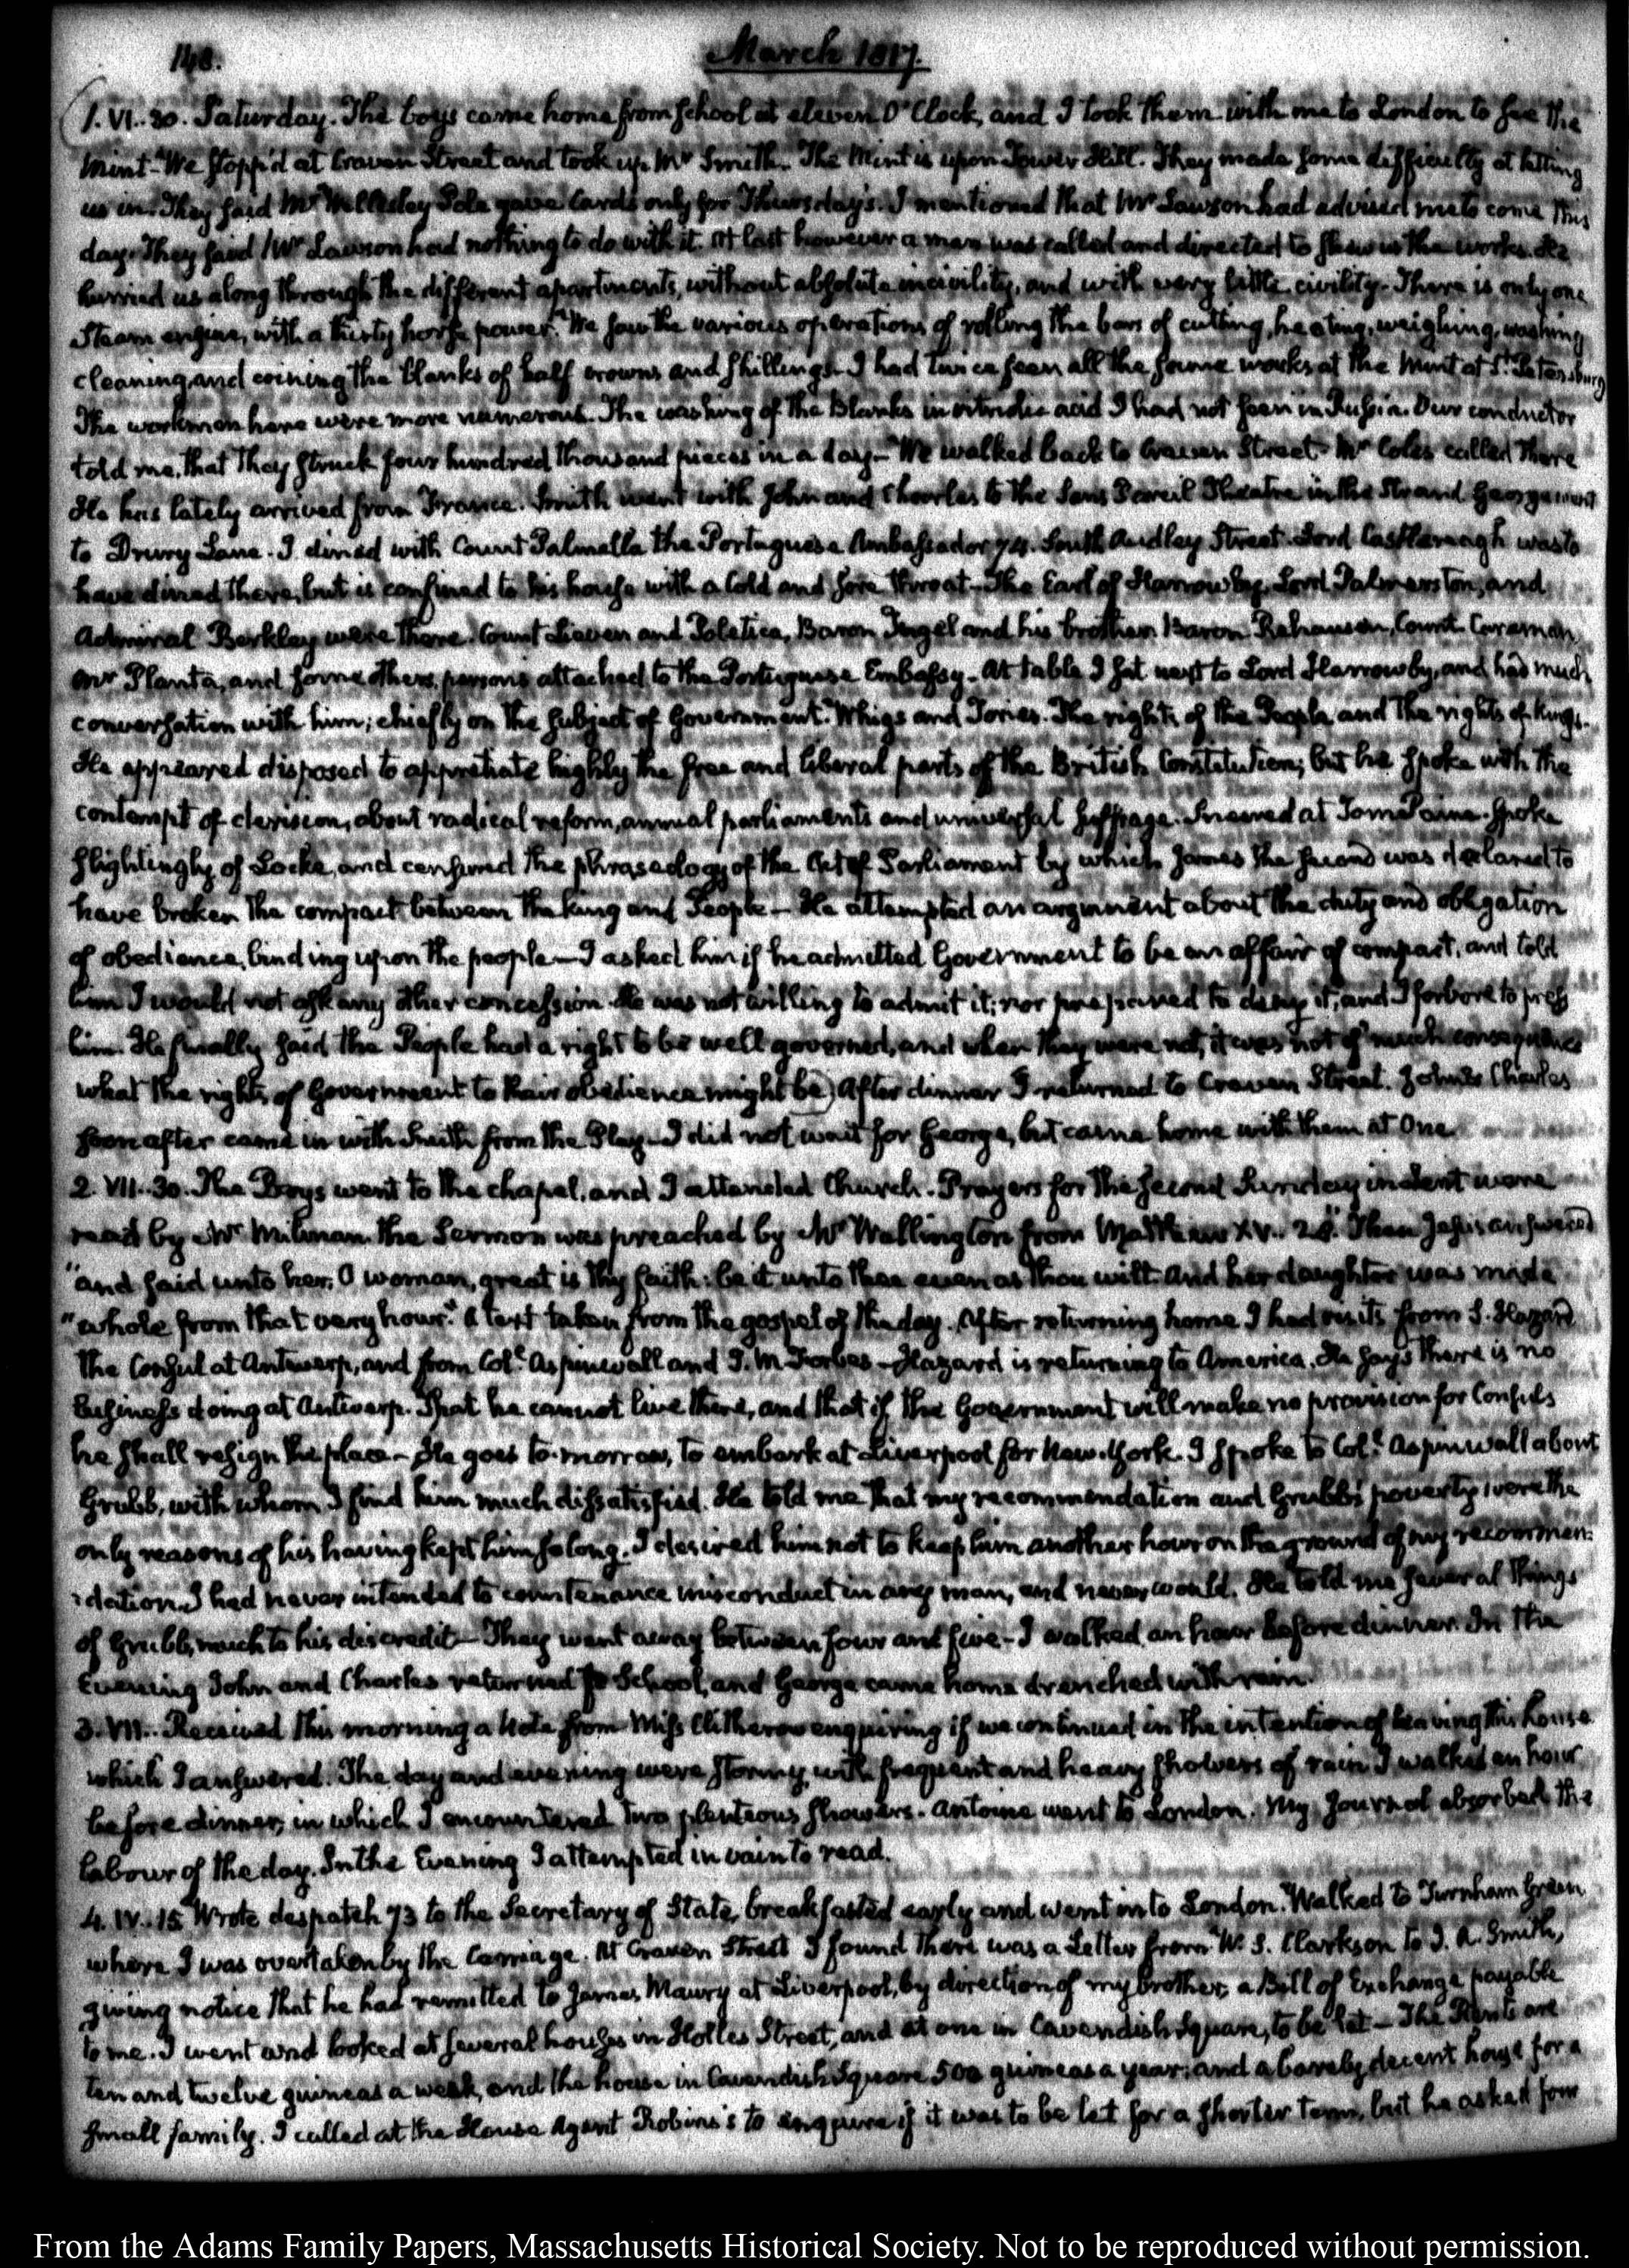 148.
March 1817.
1. VI..30. Saturday. The boys came home from school at eleven O'Clock, and I took them with me to London to see the
Mint_ We stopp'd at Craven Street and took up Mr Smith_ The Mint is upon Tower Hill. They made some difficulty at letting
us in. They said Mr Wellesley Pole gave Cards only for Thursday's. I mentioned that Mr Lawson had advised me to come this
day. They said Mr Lawson had nothing to do with it. At last however a man was called and directed to shew us the works. He
hurried us along through the different apartments, without absolute incivility, and with very little civility_ There is only one
Steam engine, with a thirty horse power. We saw the various operations of rolling the bars of cutting, heating, weighing, washing
cleaning, and coining the blanks of half crowns and shillings_ I had twice seen all the same works at the Mint at St. Petersburg
The workmen here were more numerous. The washing of the Blanks in vitriolic acid I had not seen in Russia. Our conductor
told me, that they struck four hundred thousand pieces in a day_ We walked back to Craven Street_ Mr Coles called there
He has lately arrived from France. Smith went with John and Charles to the Sans Pareil Theatre in the Strand. George went
to Drury Lane. I dined with Count Palmella the Portuguese Ambassador 74. South Audley Street. Lord Castlereagh was to
have dined there, but is confined to his house with a Cold and sore throat_ The Earl of Harrowby, Lord Palmerston, and
Admiral Berkley were there. Count Lieven and Poletica, Baron Jugel and his brother Baron Rehausen, Count Caraman,
Mr Planta, and some others, persons attached to the Portuguese Embassy_ At table I sat next to Lord Harrowby, and had much
conversation with him; chiefly on the subject of Government. Whigs and Tories. The rights of the People and the rights of Kings.
He appeared disposed to appretiate highly the free and liberal parts of the British Constitution; but he spoke with the
contempt of derision, about radical reform, annual parliaments and universal suffrage. Sneered at Tom Paine. Spoke
slightingly of Locke, and censured the phraseology of the Act of Parliament by which James the second was declared to
have broken the compact between the king and People_ He attempted an argument about the duty and obligation
of obedience, binding upon the people_ I asked him if he admitted Government to be an affair of compact, and told
him I would not ask any other concession. He was not willing to admit it; nor prepared to deny it; and I forbore to press
him. He finally said the People had a right to be well governed, and when they were not, it was not of much consequence
what the rights of Government to their obedience might be) After dinner I returned to Craven Street. John & Charles
soon after came in with Smith from the Play_ I did not wait for George, but came home with them at One
2. VII..30. The Boys went to the chapel, and I attended Church. Prayers for the second Sunday in Lent were
read by Mr Milman. the Sermon was preached by Mr Wallington from Matthew XV..28. "Then Jesus answered
"and said unto her, O woman, great is thy faith: be it unto thee even as thou wilt. And her daughter was made
"whole from that very hour." A text taken from the gospel of the day. After returning home I had visits from S. Hazard
the Consul at Antwerp, and from Coll. Aspinwall and J. M. Forbes_ Hazard is returning to America. He says there is no
business doing at Antwerp. That he cannot live there, and that if the Government will make no provision for Consuls
he shall resign the place_ He goes to-morrow, to embark at Liverpool for New-York. I spoke to Coll. Aspinwall about
Grubb, with whom I find him much dissatisfied. He told me that my recommendation and Grubb's poverty were the
only reasons of his having kept him so long. I desired him not to keep him another hour on the ground of my recommen:
:dation. I had never intended to countenance misconduct in any man, and never would. He told me several things
of Grubb, much to his discredit_ They went away between four and five_ I walked an hour before dinner. In the
Evening John and Charles returned to School, and George came home drenched with rain.
3. VII.. Received this morning a Note from Miss Clitherow enquiring if we continued in the intention of leaving this house
which I answered. The day and evening were stormy, with frequent and heavy showers of rain I walked an hour
before dinner, in which I encountered two plenteous showers. Antoine went to London. My Journal absorbed the
labour of the day. In the Evening I attempted in vain to read.
4. IV..15. Wrote despatch 73 to the Secretary of State, breakfasted early and went into London. Walked to Turnham Green
where I was overtaken by the Carriage. At Craven Street I found there was a Letter from W. S. Clarkson to J. A. Smith,
giving notice that he had remitted to James Maury at Liverpool, by direction of my brother, a Bill of Exchange payable
to me. I went and looked at several houses in Holles Street, and at one in Cavendish Square, to be let_ The Rents are
ten and twelve guineas a week, and the house in Cavendish Square 500 guineas a year; and a barely decent house for a
small family. I called at the House Agent Robins's to enquire if it was to be let for a shorter term, but he asked four
From the Adams Family Papers, Massachusetts Historical Society. Not to be reproduced without permission.